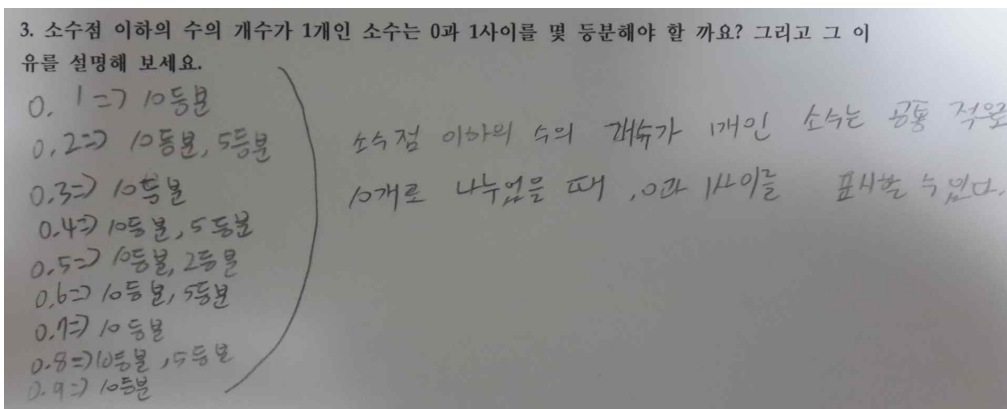 3. 소수점 이하의 수의 개수가 1개인 소수는 0과 1사이를 몇 등분해야 할 까요? 그리고 그 이
유를 설명해 보세요.
0. 1 => 10등분
0.2=> 10등분, 5등분
0.3=> 10등분
0.4=> 10등분, 5등분
0.5=> 10등분, 2등분
0.6=> 10등분, 5등분
0.7=> 10등분
0.8=> 10등분, 5등분
0.9=> 10등분
소수점 이하의 수의 개수가 1개인 소수는 공통 적으로
10개로 나누었을 때, 0과 1사이를 표시할 수 있다.